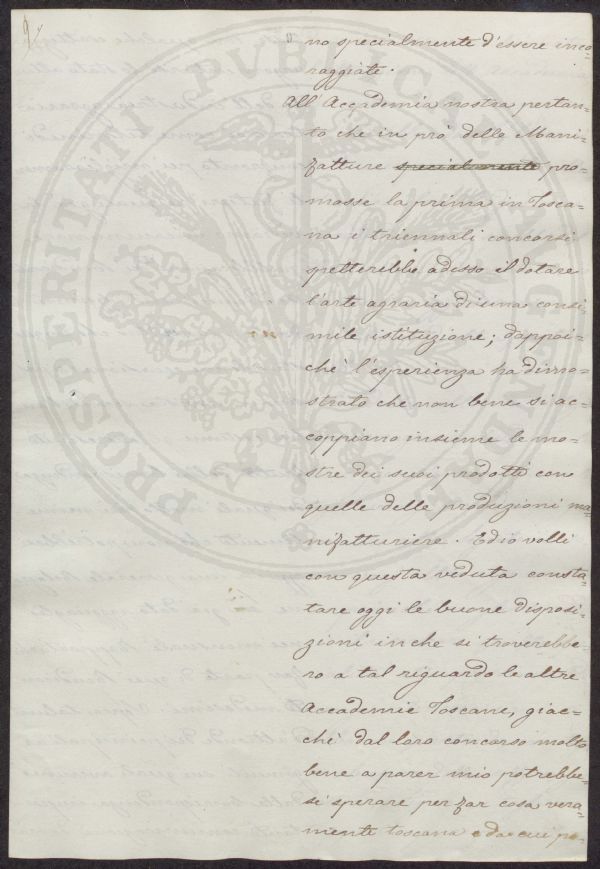 no specialmente d'essere inco=
raggiate.
All'Accademia nostra pertan=
to che in prò delle Mani=
fatture specialmente pro=
mosse la prima in Tosca=
na i triennali concorsi
spetterebbe adesso il dotare
l'arte agraria di una consi=
mile istituzione; dappoi=
chè l'esperienza ha dimo=
strato che non bene si ac=
coppiano insieme le mo=
stre dei suoi prodotti con
quelle delle produzioni ma=
nifatturiere. Ed io volli
con questa veduta consta=
tare oggi le buone disposi=
zioni in che si troverebbe=
ro a tal riguardo le altre
Accademie Toscane, giac=
chè dal loro concorso molto
bene a parer mio potrebbe=
si sperare per far cosa vera=
mente toscana e da cui po=
PROSPERITATI PUBLICAE AUGENDAE